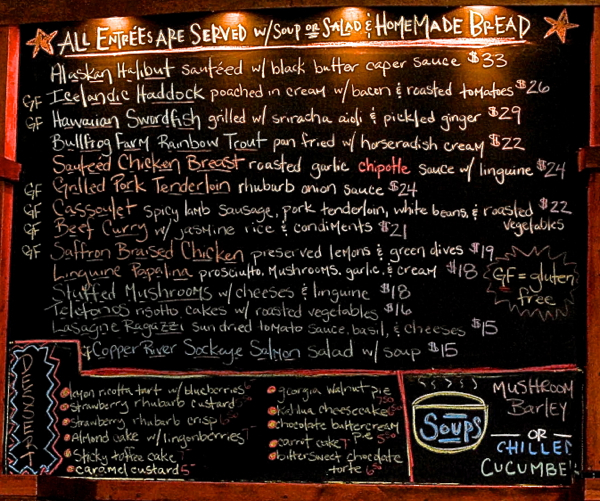 ALL ENTRÉES ARE SERVED w/ SOUP OR SALAD & HOMEMADE BREAD
Alaskan Halibut sautéed w/ black butter caper sauce $33
GF Icelandic Haddock poached in cream w/ bacon & roasted tomatoes $26
GF Hawaiian Swordfish grilled w/ sriracha aioli & pickled ginger $29
Bullfrog Farm Rainbow Trout pan fried w/ horseradish cream $22
Sauteed Chicken Breast roasted garlic chipotle sauce w/ linguine $24
GF Grilled Pork Tenderloin rhubarb onion sauce $24
GF Cassoulet spicy lamb sausage, pork tenderloin, white beans, & roasted vegetables $22
GF Beef Curry w/ jasmine rice & condiments $21
GF Saffron Braised Chicken preserved lemons & green olives $19
Linguine Papalina prosciutto, mushrooms, garlic, & cream $18
GF = gluten free
Stuffed Mushrooms w/ cheeses & linguine $18
Telefonos risotto cakes w/ roasted vegetables $16
Lasagne Ragazzi sun dried tomato sauce, basil, & cheeses $15
Copper River Sockeye Salmon Salad w/ soup $15
DESSERT
lemon ricotta tart w/ blueberries
strawberry rhubarb custard
strawberry rhubarb crisp
Almond cake w/ lingonberries 7
Sticky toffee cake 7
caramel custard 5
georgia walnut pie
kahlua cheesecake
chocolate buttercream pie
carrot cake
bittersweet chocolate torte
SOUPS
MUSHROOM
BARLEY
OR
CHILLED
CUCUMBE